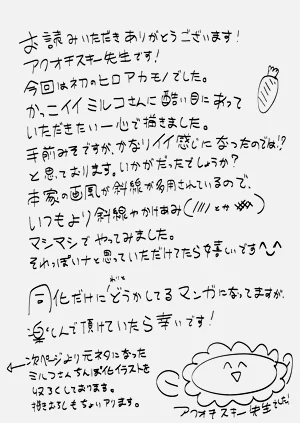 お読みいただきありがとうございます!
アクオチスキー先生です!
今回は初のヒロアカモノでした。
かっこイイミルコさんに酷い目にあって
いただきたい一心で描きました。
手前みそですが、かなりイイ感じになったのでは!?
と思っております。いかがだったでしょうか?
本家の画風が斜線が多用されているので、
いつもより斜線やかけあみ(//// とか )
マシマシでやってみました。
それっぽいナと思っていただけてたら嬉しいです^^
化だけにわりとどうかしてるマンガになってますが、
楽しんで頂けていたら幸いです!
←次ページより元ネタになった
ミルコさんちんぽ化イラストを
収ろくしております。
描きおろしもちょいアリます。
アクオチスキー先生でした!